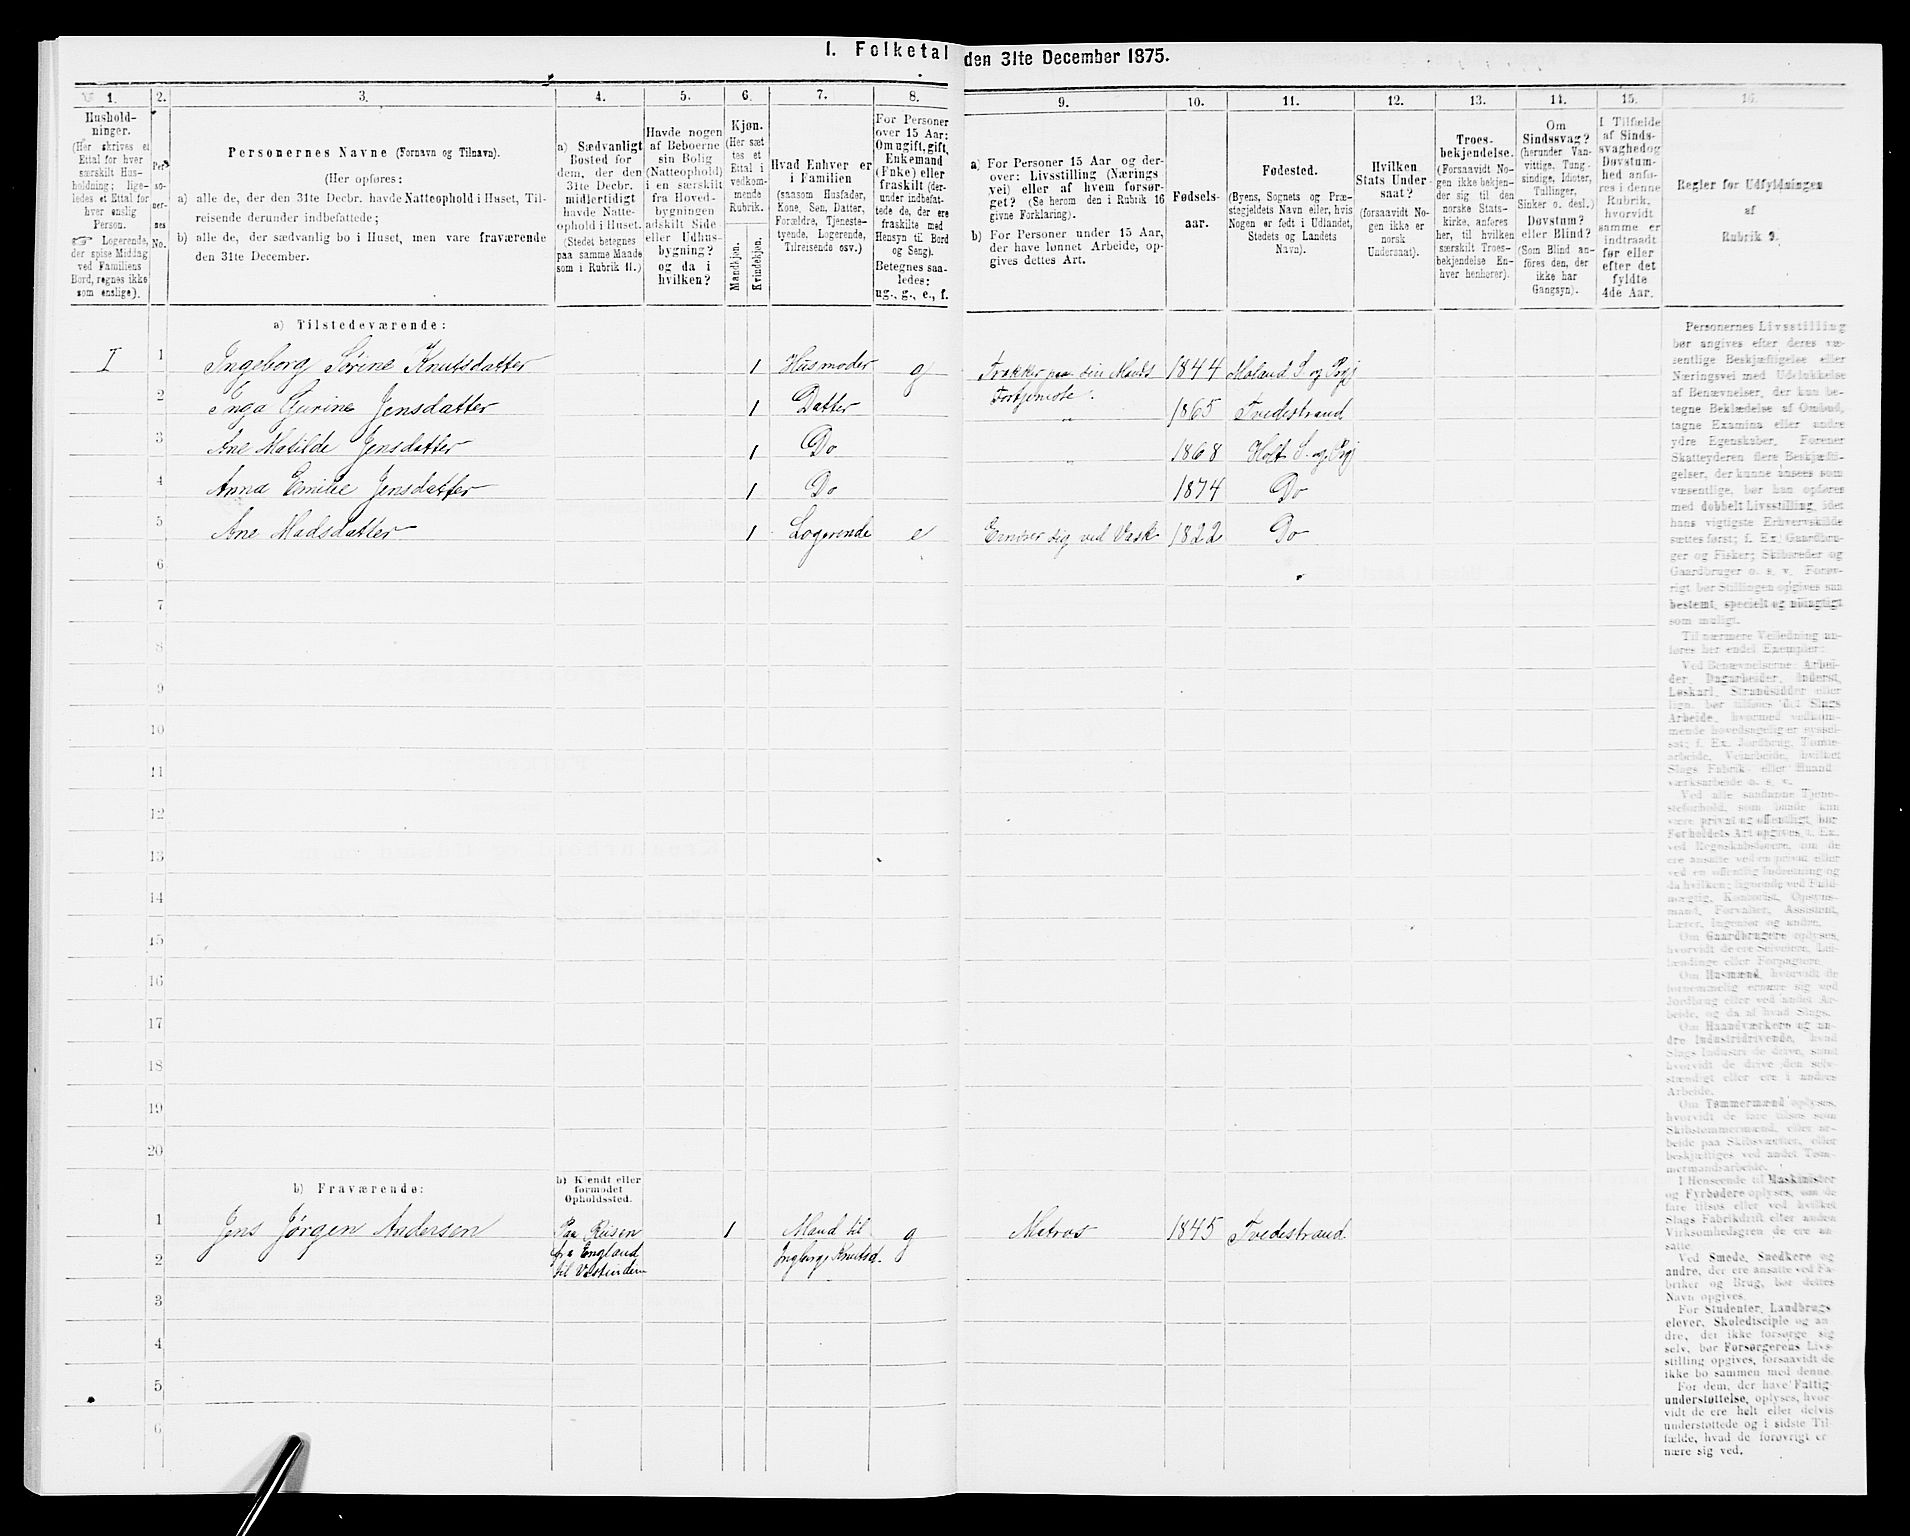 I. Folketal den 31te December 1875.
1. 2. 3. 4. 5. 6. 7. 8. 9. 10. 11. 12. 13. 14. 15. 16.
Hushold-
ninger.
(Her skrives et
Ettal for hver
særskilt Hus-
holdning; lige-
ledes et Ettal for
hver enslig
Person.
☞ Logerende,
der spise Middag
ved Familiens
Bord, regnes ikke
som enslige).
Per-
so-
ner-
nes
No.
Personernes Navne (Fornavn og Tilnavn).
(Her opføres:
a) alle de, der den 31te Decbr. havde Natteophold i Huset, Til-
reisende derunder indbefattede;
b) alle de, der sædvanlig bo i Huset, men vare fraværende
den 31te December.
a) Sædvanligt
Bosted for
dem, der den
31te Decbr.
midlertidigt
havde Natte-
ophold i Huset.
(Stedet betegnes
paa samme Maade
som i Rubrik 11.)
Havde nogen
af Beboerne
sin Bolig
(Natteophold)
i en særskilt
fra Hoved-
bygningen
adskilt Side-
eller Udhus-
bygning?
og da i
hvilken?
Kjøn.
(Her sæt-
tes et
Ettal i
vedkom-
mende
Rubrik.
Mandkjøn.
Kvindekjøn.
Hvad Enhver er
i Familien
(saasom Husfader,
Kone, Søn, Datter,
Forældre, Tjeneste-
tyende, Logerende,
Tilreisende osv.)
For Personer
over 15 Aar:
Om ugift, gift,
Enkemand
(Enke) eller
fraskilt (der-
under indbefat-
tede de, der ere
fraskilte med
Hensyn til Bord
og Seng).
Betegnes saa-
ledes:
ug., g., e., f.
a) For Personer 15 Aar og der-
over: Livsstilling (Nærings
vei) eller af hvem forsør-
get? (Se herom den i Rubrik 16
givne Forklaring).
b) For Personer under 15 Aar,
der have lønnet Arbeide, op-
gives dettes Art.
Fødsels-
aar.
Fødested.
(Byens, Sognets og Præ-
stegjeldets Navn eller, hvis
Nogen er født i Udlandet,
Stedets og Landets
Navn).
Hvilken
Stats Under-
saat?
(forsaavidt No-
gen ikke er
norsk
Undersaat).
Troes-
bekjendelse.
(Forsaavidt No-
gen ikke bekjen-
der sig til den
norske Stats-
kirke, anføres
her, til hvilken
særskilt Troes-
bekjendelse En-
hver henhører).
Om
Sindssvag?
(herunder Van-
vittige, Tung-
sindige, Idioter,
Tullinger,
Sinker o. desl.)
Døvstum?
eller Blind?
(Som Blind an-
føres den, der
ikke har
Gangsyn).
I Tilfælde
af Sinds-
svaghed og
Døvstum-
hed anfø-
res i denne
Rubrik,
hvorvidt
samme er
indtraadt
før eller
efter det
fyldte
4de Aar.
Regler for Udfyldningen
af
Rubrik 9.
a) Tilstedeværende:
I 1 Ingeborg Sørine Knutsdatter 1 Husmoder g Trækker paa sin Mands 1844 Moland S. og Pgj
Fortjeneste.
2 Inga Gurine Jensdatter 1 Datter " 1865 Tvedestrand
3 Ane Matilde Jensdatter 1 Do " 1868 Holt S. og Pgj
4 Anna Emilie Jensdatter 1 Do 1874 Do
5 Ane Madsdatter 1 Logerende e Ernærer sig ved Vask 1822 Do
6
7
8
9
10
11
12
13
14
15
16
17
18
19
20
b) Fraværende:
b) Kjendt eller
formodet
Opholdssted.
1 Jens Jørgen Andersen Paa Reisen 1 Mand til g Matros 1845 Tvedestrand
2 fra England Ingborg Knutsd.
til Vestindien
3
4
5
6
Personernes Livsstilling
bør angives efter deres væ-
sentlige Beskjæftigelse eller
Næringsvei med Udelukkelse
af Benævnelser, der kun be-
tegne Beklædelse af Ombud,
tagne Examina eller andre
ydre Egenskaber. Forener
Skatteyderen flere Beskjæfti-
gelser, der kunne ansees som
væsentlige, bør han opføres
med dobbelt Livsstilling, idet
hans vigtigste Erhvervskilde
sættes først; f. Ex. Gaardbru-
ger og Fisker; Skibsreder og
Gaardbruger o. s. v. Forøv-
rigt bør Stillingen opgives saa
bestemt, specielt og nøiagtigt
som muligt.
Til nærmere Veiledning an-
føres her endel Exempler:
Ved Benævnelserne: Arbei-
der, Dagarbeider, Inderst,
Løskarl, Strandsidder eller
lign. bør tilføies det Slags
Arbeide, hvormed vedkom-
mende hovedsagelig er syssel-
sat; f. Ex. Jordbrug, Tømte-
arbeide, Veiarbeide, hvilket
Slags Fabrik- eller Haand-
værksarbeide o. s. v.
Ved alle saadanne Tjene-
steforhold, som baade kan
være privat og offentligt, bør
Forholdets Art opgives, f. Ex.
ved Regnskabsførere, om de
ere ansatte ved en privat eller
ved en offentlig Indretning og
da hvilken; lignende ved Fuld-
mægtig, Kontorist, Opsyns-
mand, Forvalter, Assistent,
Lærer, Ingeniør og andre.
Om Gaardbrugere oplyses,
hvorvidt de ere Selveiere, Lei-
lændinge eller Forpagtere.
Om Husmænd, hvorvidt de
fornemmelig ernære sig ved
Jordbrug eller ved andet Ar-
beide, og da af hvad Slags.
Om Haandværkere og an-
dre Industridrivende, hvad
Slags Industri de drive, samt
hvorvidt de drive den selv-
stændigt eller ere i andres
Arbeide.
Om Tømmermænd oplyses,
hvorvidt de fare tilsøs som
Skibstømmermænd, eller ar-
beide paa Skibsværfter, eller
beskjæftiges ved andet Tøm-
mermandsarbeide.
I Henseende til Maskinister
og Fyrbødere oplyses, om de
fare tilsøs eller ved hvilket
Slags Fabrikdrift eller anden
Virksomhedsgren de ere an-
satte.
Ved Smede, Snedkere og
andre, der ere ansatte ved Fa-
briker og Brug, bør dettes
Navn opgives.
For Studenter, Landbrugs-
elever, Skoledisciple og an-
dre, der ikke forsørge sig
selv, bør Forsørgerens Livs-
stilling opgives, forsaavidt de
ikke bo sammen med denne.
For dem, der have Fattig-
understøttelse, oplyses, hvor-
vidt de ere helt eller delvis
understøttede og i sidste Til-
fælde, hvad de forøvrigt er-
nære sig ved.